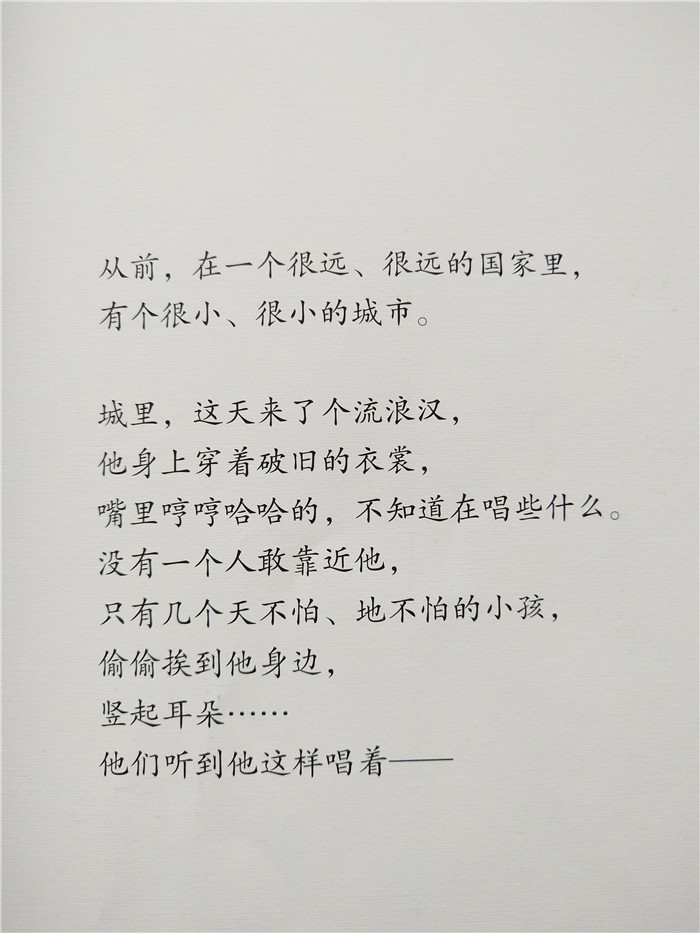 从前，在一个很远、很远的国家里，
有个很小、很小的城市。
城里，这天来了个流浪汉，
他身上穿着破旧的衣裳，
嘴里哼哼哈哈的，不知道在唱些什么。
没有一个人敢靠近他，
只有几个天不怕、地不怕的小孩，
偷偷挨到他身边，
竖起耳朵……
他们听到他这样唱着——